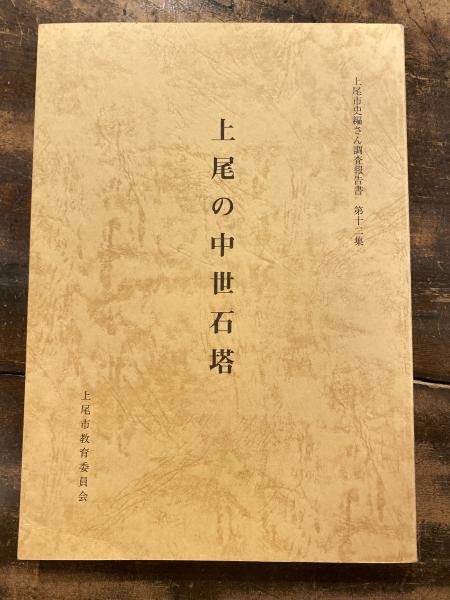 上尾市史編さん調査報告書 第十二集
上尾の中世石塔
上尾市教育委員会